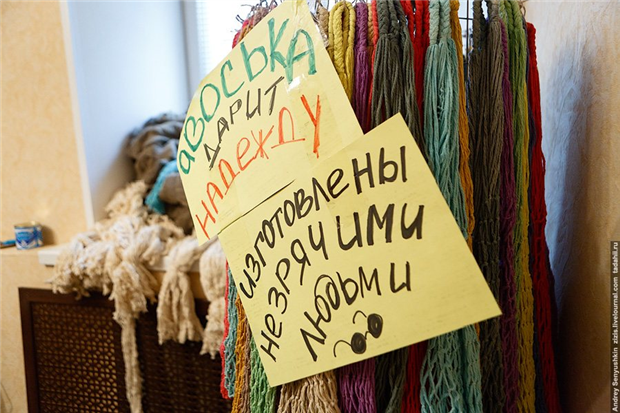 авоська
дарит
надежду
изготовлены
незрячими
людьми
Andrey Senyushkin zizis.livejournal.com tadahil.ru